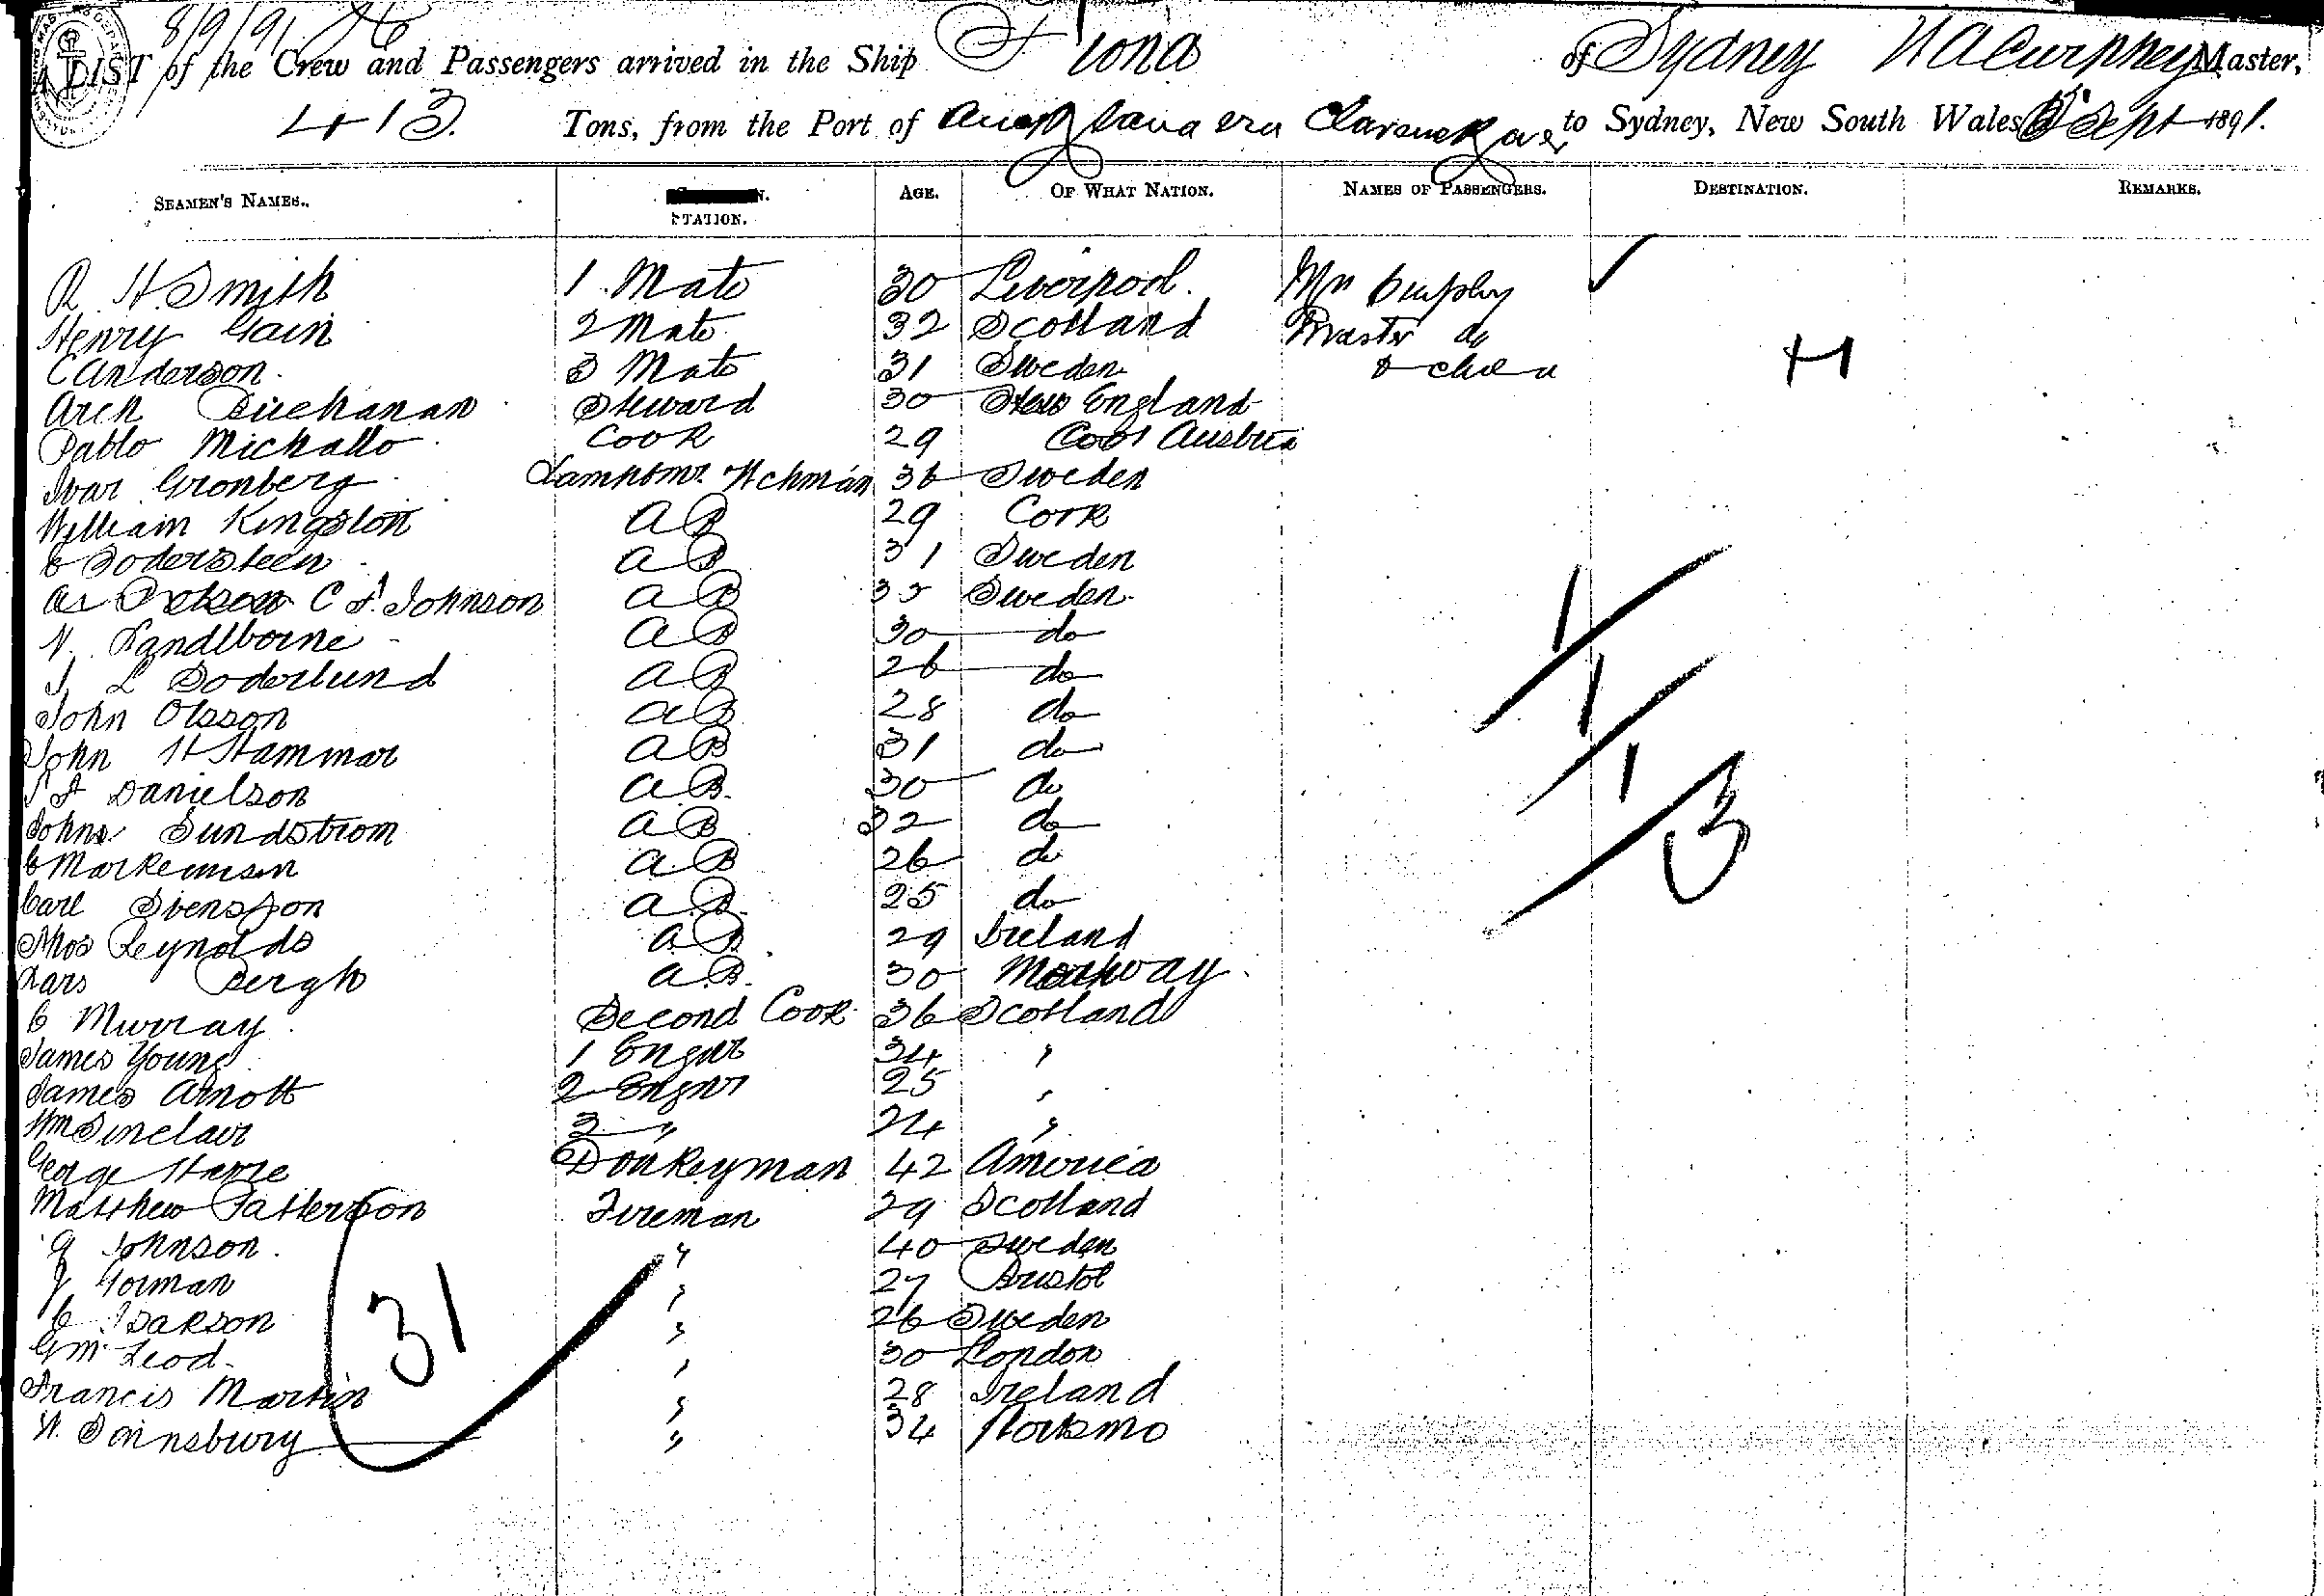 8/9/91
A LIST of the Crew and Passengers arrived in the Ship Fiona of Sydney W A Curphey Master,
413 Tons, from the Port of Clarence River to Sydney, New South Wales Sept 1891.
SEAMEN'S NAMES. STATION. AGE. OF WHAT NATION. NAMES OF PASSENGERS. DESTINATION. REMARKS.
R H Smith 1 Mate 30 Liverpool. Mrs Curphey
Henry Gain 2 Mate 32 Scotland Master do
C Anderson 3 Mate 31 Sweden 4
Arch Buchanan Steward 30 New England
Pablo Michallo Cook 29 Austria
Ivar Gronberg Lamptmr. Wchman 36 Sweden
William Kingston AB 29 Cork
C Sodersteen AB 31 Sweden
C F Johnson AB 35 Sweden
N. Landlborne AB 30 do
J L Soderlund AB 26 do
John Olsson AB 28 do
John H Hammar AB 31 do
J F Danielson AB. 30 do
Johns Sundstrom AB 32 do
C Markeunson AB 26 do
Carl Svensson AB. 25 do
Thos Reynolds AB. 29 Ireland
Lars Bergh AB. 30 Norway
C Murray Second Cook 36 Scotland
James Young 1 Engnr 34 "
James Arnott 2 Engnr 25 "
Wm Sinclair 3 " 24 "
George Harre Donkeyman 42 America
Matthew Patterson Fireman 29 Scotland
G Johnson " 40 Sweden
J Gorman " 27 Bristol
C Isakson " 26 Sweden
G McLeod " 30 London
Francis Martin " 28 Ireland
W. Sainsbury " 34
1
1
1
3
31